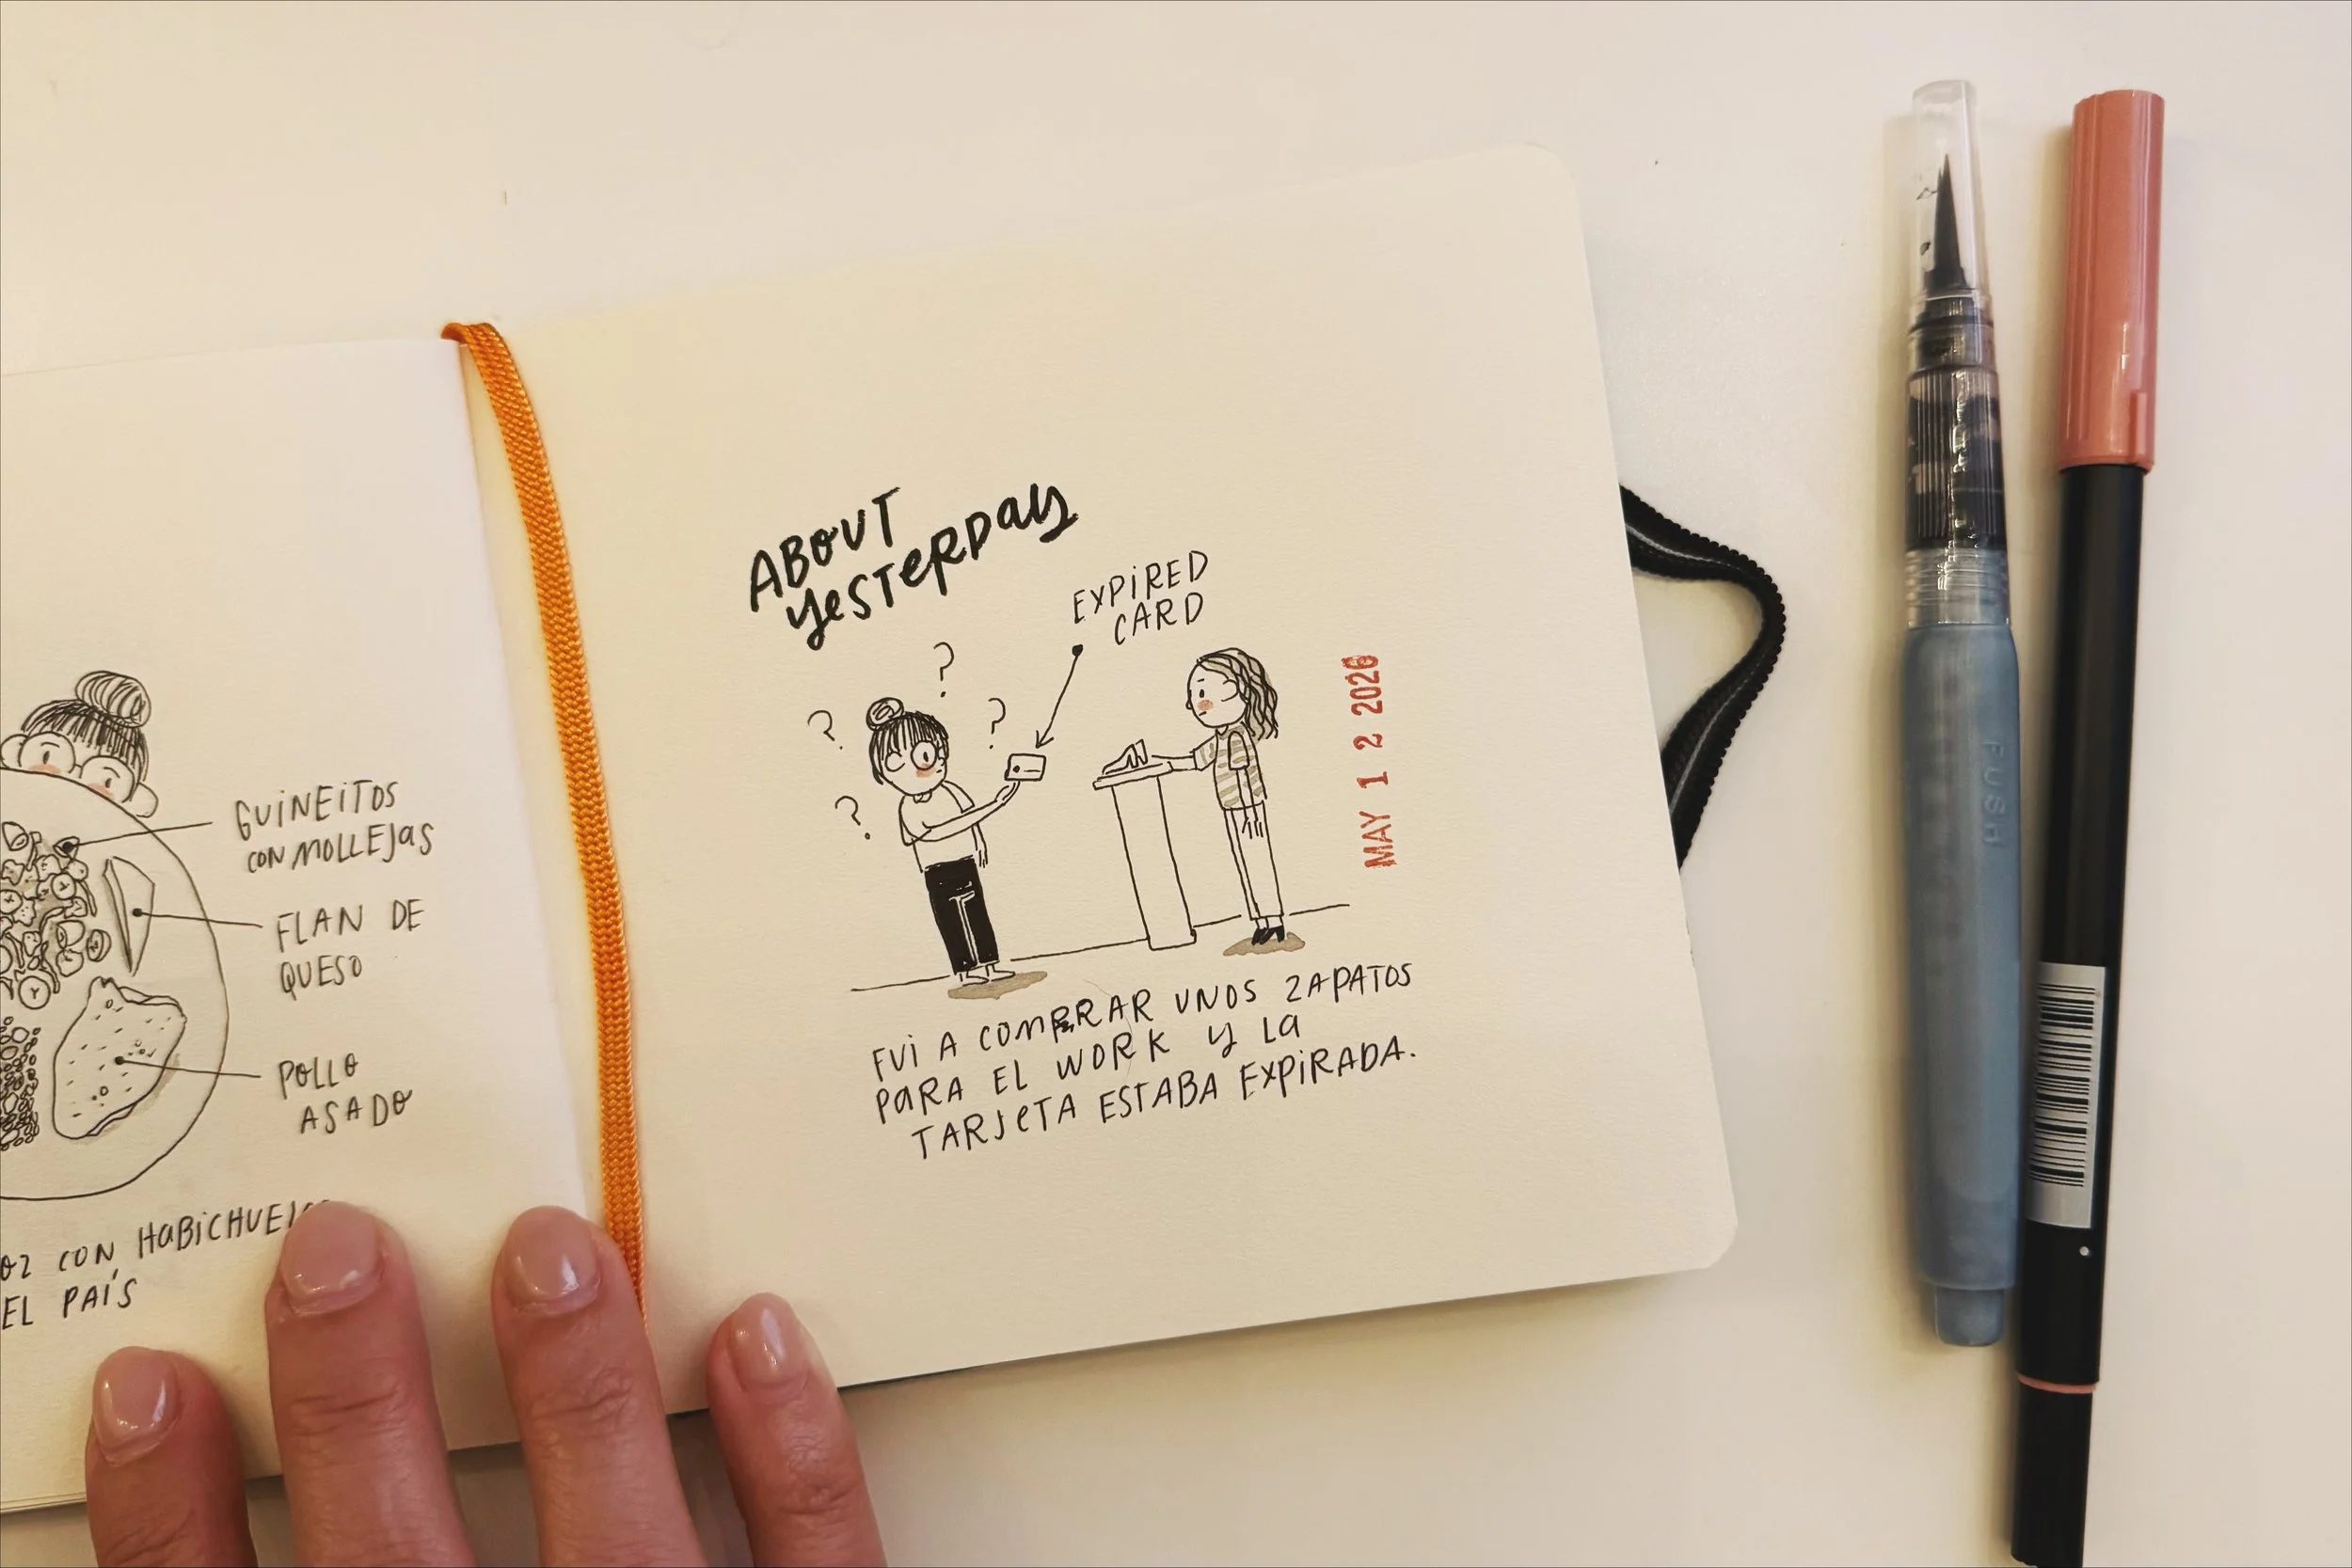 GUINEITOS
CON MOLLEJAS
FLAN DE
QUESO
POLLO
ASADO
CON HABICHUELAS
EL PAÍS
ABOUT
YESTERDAY
EXPIRED
CARD
? ? ? ?
MAY 1 2 2026
FUI A COMPRAR UNOS ZAPATOS
PARA EL WORK Y LA
TARJETA ESTABA EXPIRADA.
PUSH